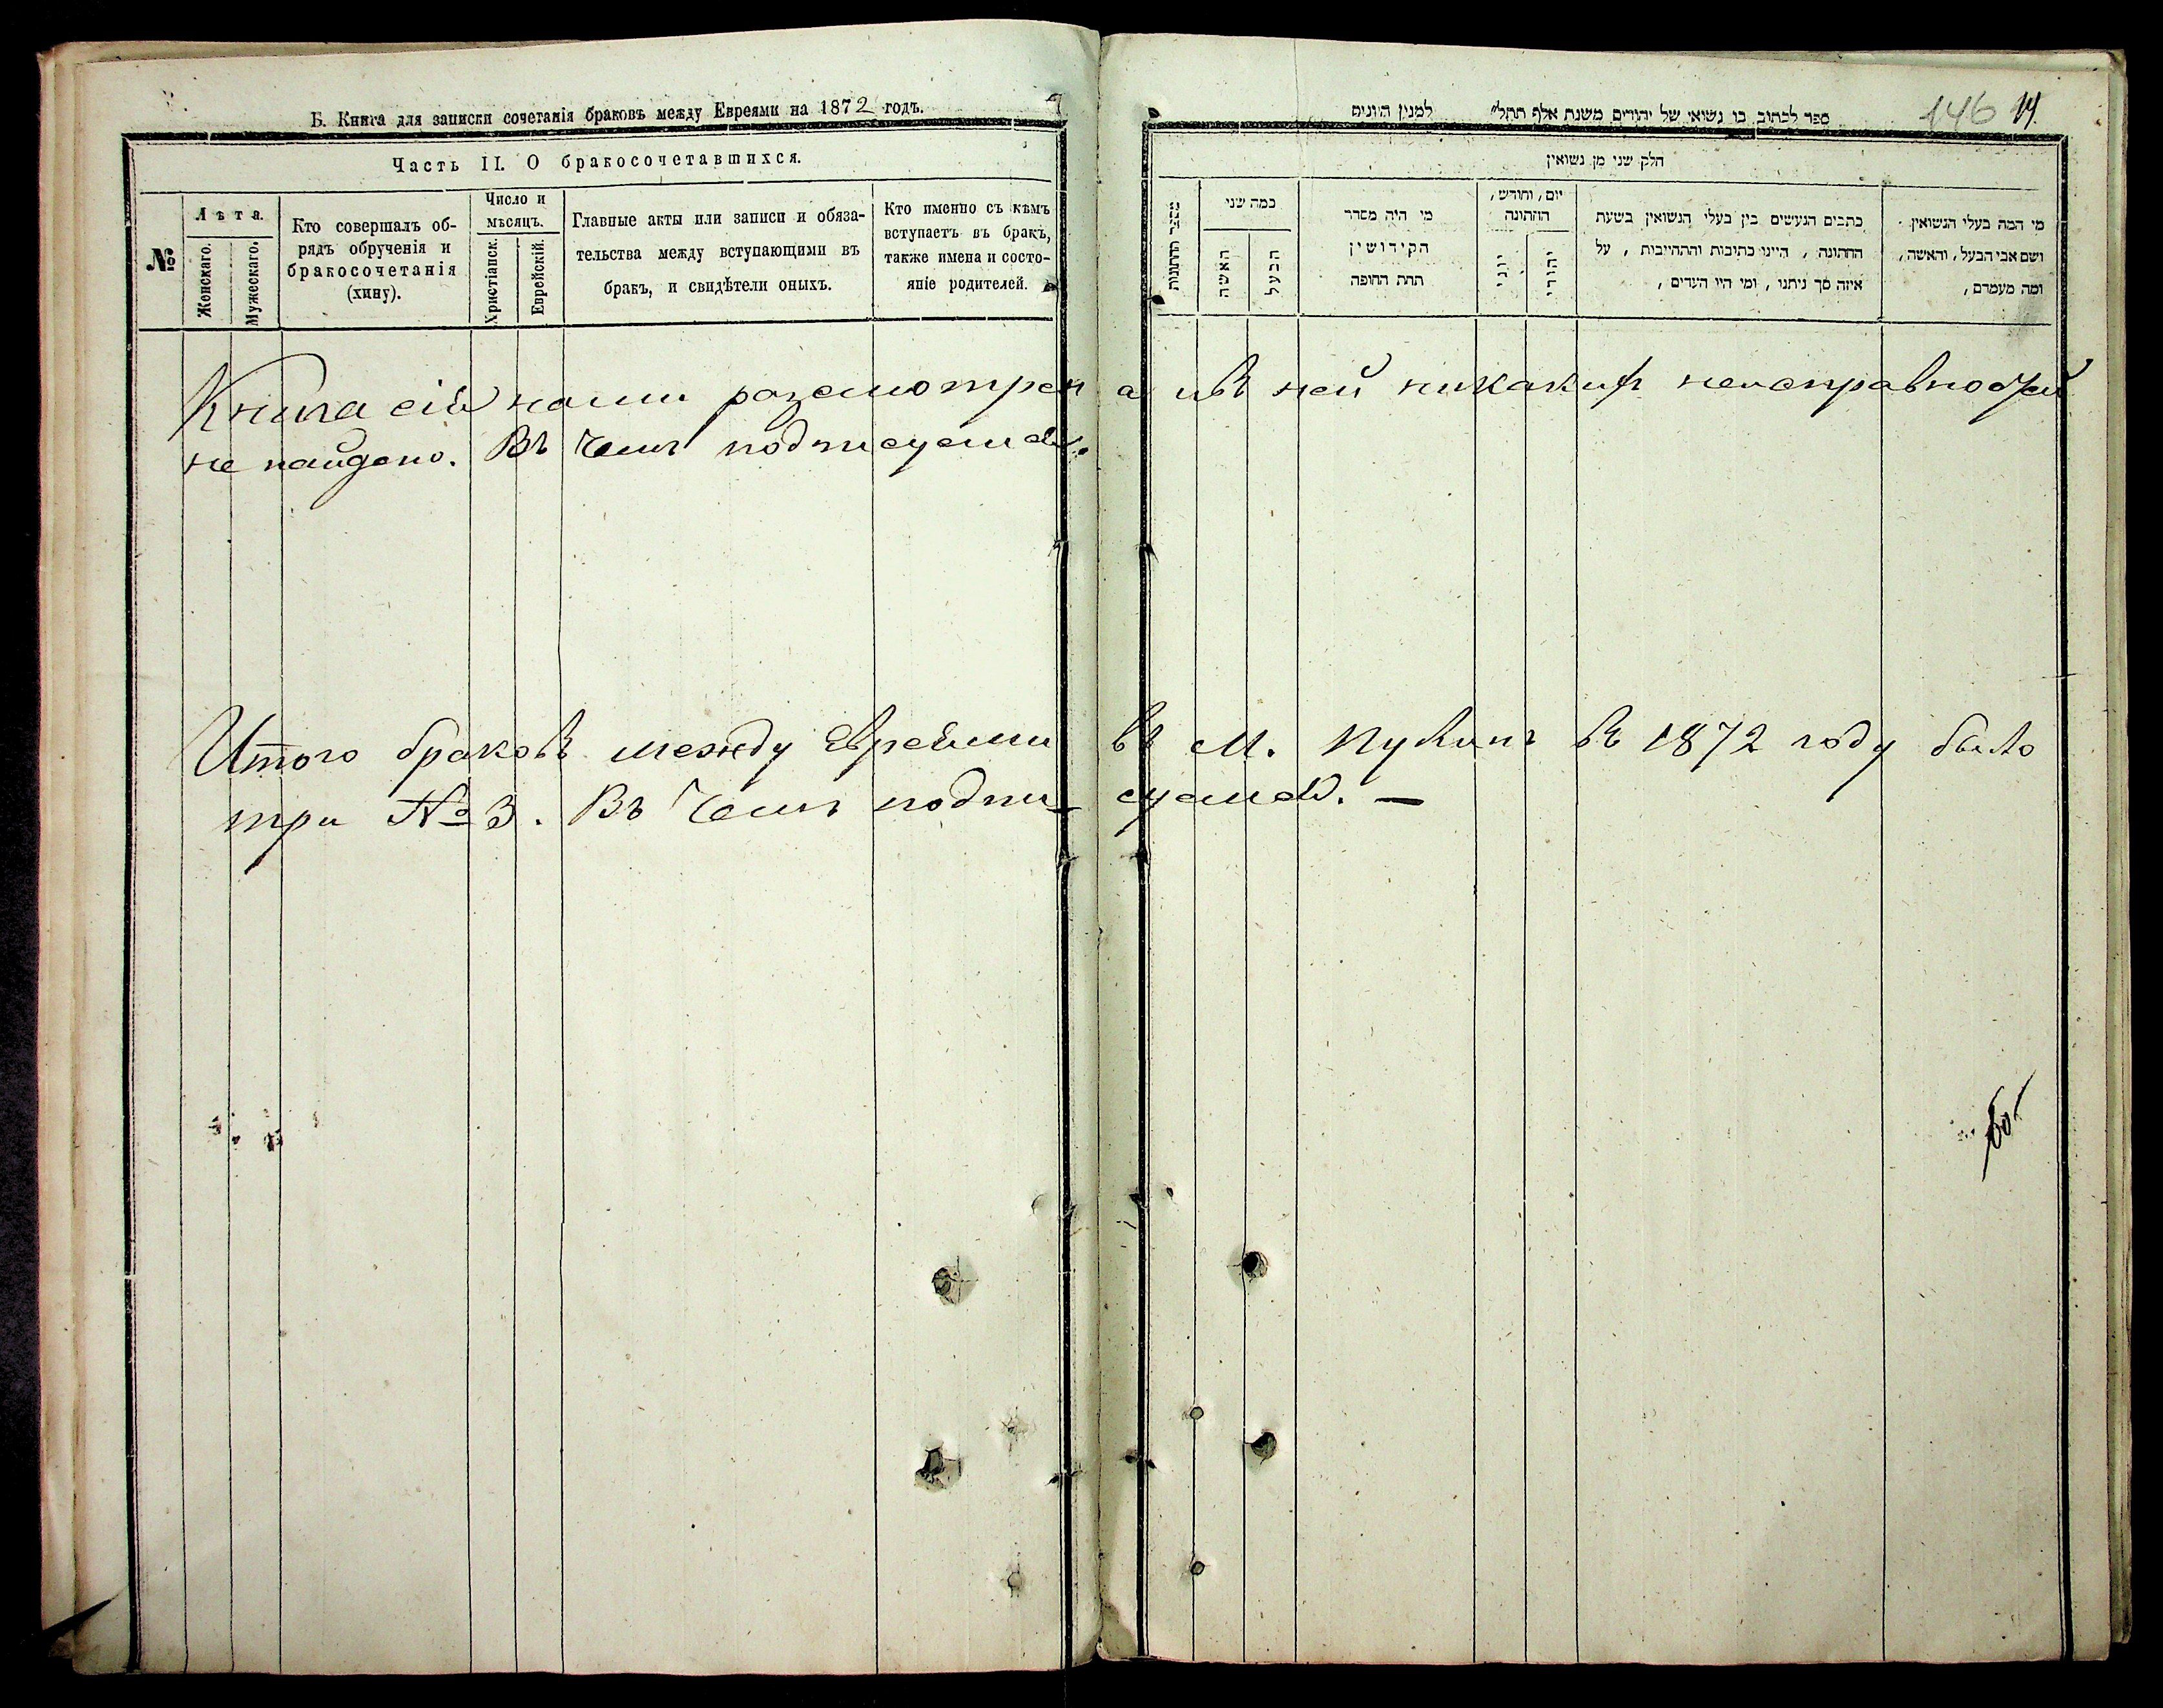 Б. Книга для записки сочетанія браковъ между Евреями на 1872 годъ.
Часть II. О бракосочетавшихся.
№
Лѣта.
Женскаго.
Мужескаго.
Кто совершалъ об-
рядъ обрученія и
бракосочетанія
(хипу).
Число и
мѣсяцъ.
Христіанск.
Еврейскій.
Главные акты или записи и обяза-
тельства между вступающими въ
бракъ, и свидѣтели оныхъ.
Кто именно съ кѣмъ
вступаетъ въ бракъ,
также имена и состо-
яніе родителей.
ספר לכתוב בו נשואי של יהודים משנת אלף תתל" למנין היונים
146 14
חלק שני מן נשואין
מספר החתונות
כמה שני
האשה
הבעל
מי היה מסדר
הקידושין
תחת החופה
יום, וחודש,
החתונה
יוני
יהודי
כתבים הנעשים בין בעלי הנשואין בשעת
החתונה, היינו כתיבות והתחייבות, על
איזה סך ניתנו, ומי היו העדים,
מי המה בעלי הנשואין.
ושם אבי הבעל, והאשה,
ומה מעמדם,
Книга сія нами разсмотрена и въ ней никакихъ неисправностей
не найдено. Въ чемъ подписуемся.
Итого браковъ между Евреями въ М. Кукинъ въ 1872 году было
три № 3. Въ чемъ подписуемся. —